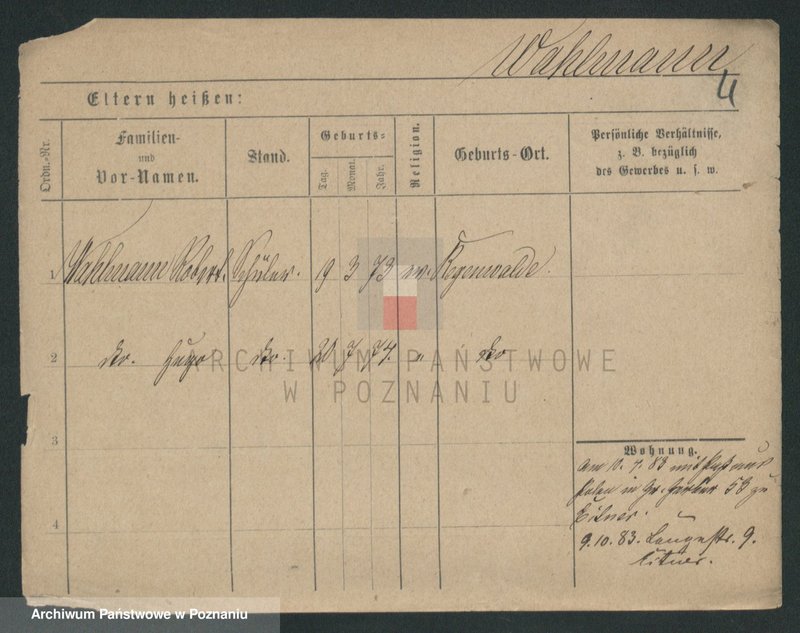 Wahlmann
4
Eltern heißen:
Ordn.-Nr.
Familien-
und
Vor-Namen.
Stand.
Geburts-
Tag.
Monat.
Jahr.
Religion.
Geburts-Ort.
Persönliche Verhältnisse,
z. B. bezüglich
des Gewerbes u. s. w.
1 Wahlmann Robert. Schüler. 19 3 73 ev. Regenwalde.
2 do. Hugo do. 20 7 74. " do
ARCHIWUM PAŃSTWOWE
W POZNANIU
3
Wohnung.
am 10. 4. 83 mit aus
Polen in Gr. Gerber 58 zu
9. 10. 83. Langestr. 9.
4
Archiwum Państwowe w Poznaniu